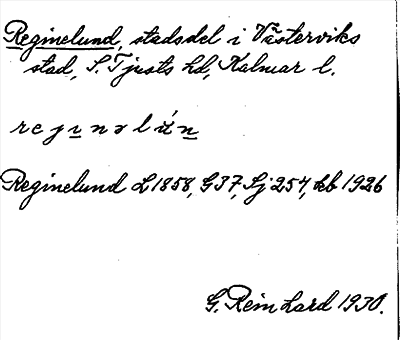 Reginelund, stadsdel i Västerviks
stad, S. Tjusts hd, Kalmar l.
rejınəlún
Reginelund L 1858, G 37, Sj 254, kb 1926
G. Reinhard 1930.